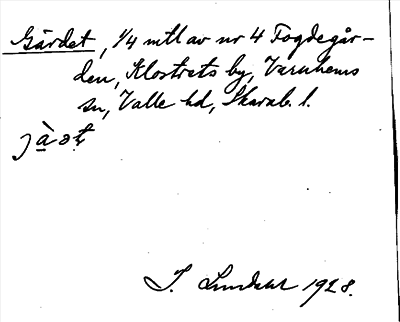 Gärdet, 1/4 mtl av nr 4 Fogdegår-
den, Klostrets by, Varnhems
sn, Valle hd, Skarab. l.
1928.